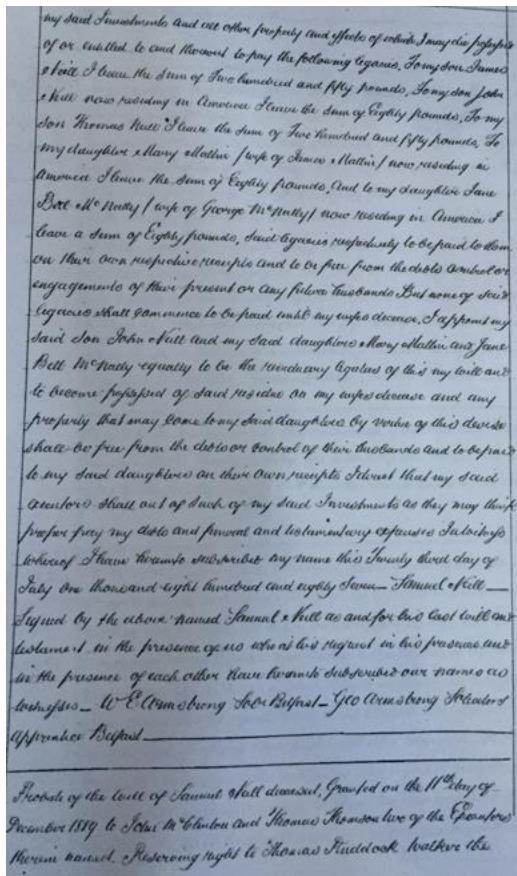 my said Investments and all other property and effects of which I may die possessed
of or entitled to and thereout to pay the following legacies, To my son James
Neill I leave the sum of Two hundred and fifty pounds, To my son John
Neill now residing in America I leave the sum of Eighty pounds, To my
son Thomas Neill I leave the sum of Two hundred and fifty pounds, To
my daughter Mary Mattin / wife of James Mattin / now residing in
America I leave the sum of Eighty pounds, And to my daughter Jane
Bell McNally / wife of George McNally / now residing in America I
leave a sum of Eighty pounds, said legacies respectively to be paid to them
on their own respective receipts and to be free from the debts control or
engagements of their present or any future husbands But none of said
legacies shall commence to be paid until my wifes decease, I appoint my
said son John Neill and my said daughters Mary Mattin and Jane
Bell McNally equally to be the residuary legatees of this my will and
to become possessed of said residue on my wifes decease and any
property that may come to my said daughters by virtue of this devise
shall be free from the debts or control of their husbands and to be paid
to my said daughters on their own receipts I direct that my said
executors shall out of such of my said Investments as they may think
proper pay my debts and funeral and testamentary expenses In witness
whereof I have hereunto subscribed my name this Twenty third day of
July one thousand eight hundred and eighty seven — Samuel Neill —
Signed by the above named Samuel Neill as and for his last will and
testament in the presence of us who at his request in his presence and
in the presence of each other have hereunto subscribed our names as
witnesses — W E Armstrong Solr Belfast — Geo Armstrong Solicitors
Apprentice Belfast —
Probate of the will of Samuel Neill deceased, Granted on the 11th day of
December 1889 to John McClinton and Thomas Thomson two of the Executors
therein named. Reserving right to Thomas the